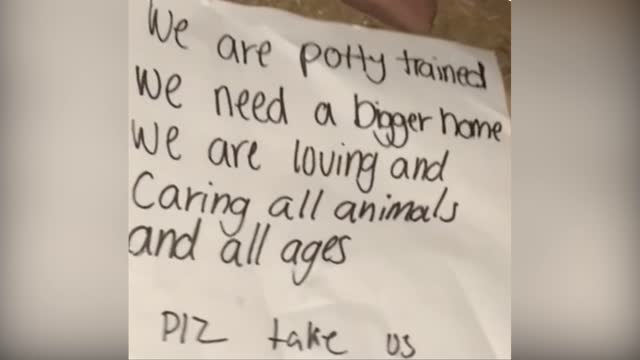 We are potty trained
We need a bigger home
We are loving and
Caring all animals
and all ages
Plz take us